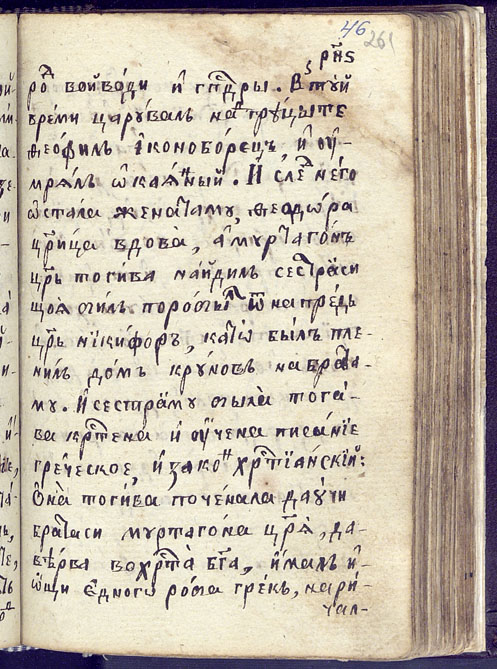 46
261
рн҃ѕ
ро҃ войводи и гпⷣры. Втꙋй
време царувалъ на грьцыте
ѳеофилъ ἰконоборецъ, и оу-
мрялъ ѡкаянный. И слеⷣ него
ѡстала женатаму, ѳеодѡра
црⷪица вдова, а муртагонъ
црь тогива найдилъ сестраси
щоя билъ поробилъ ѿ напредь
црь никифоръ, катѡ былъ пле-
нилъ домъ крумовъ на брата-
му. И сестраму была тога-
ва крⷭтена и оучена писанїе
греческое, и законъ хрⷭтїанскїй:
Она тогива почен᲏ала да учи
братаси муртагона црⷭя, да-
вѣрва во хрⷭта бг҃а, ималъ и-
ѡщи едного роба грекъ, нари-
чал-